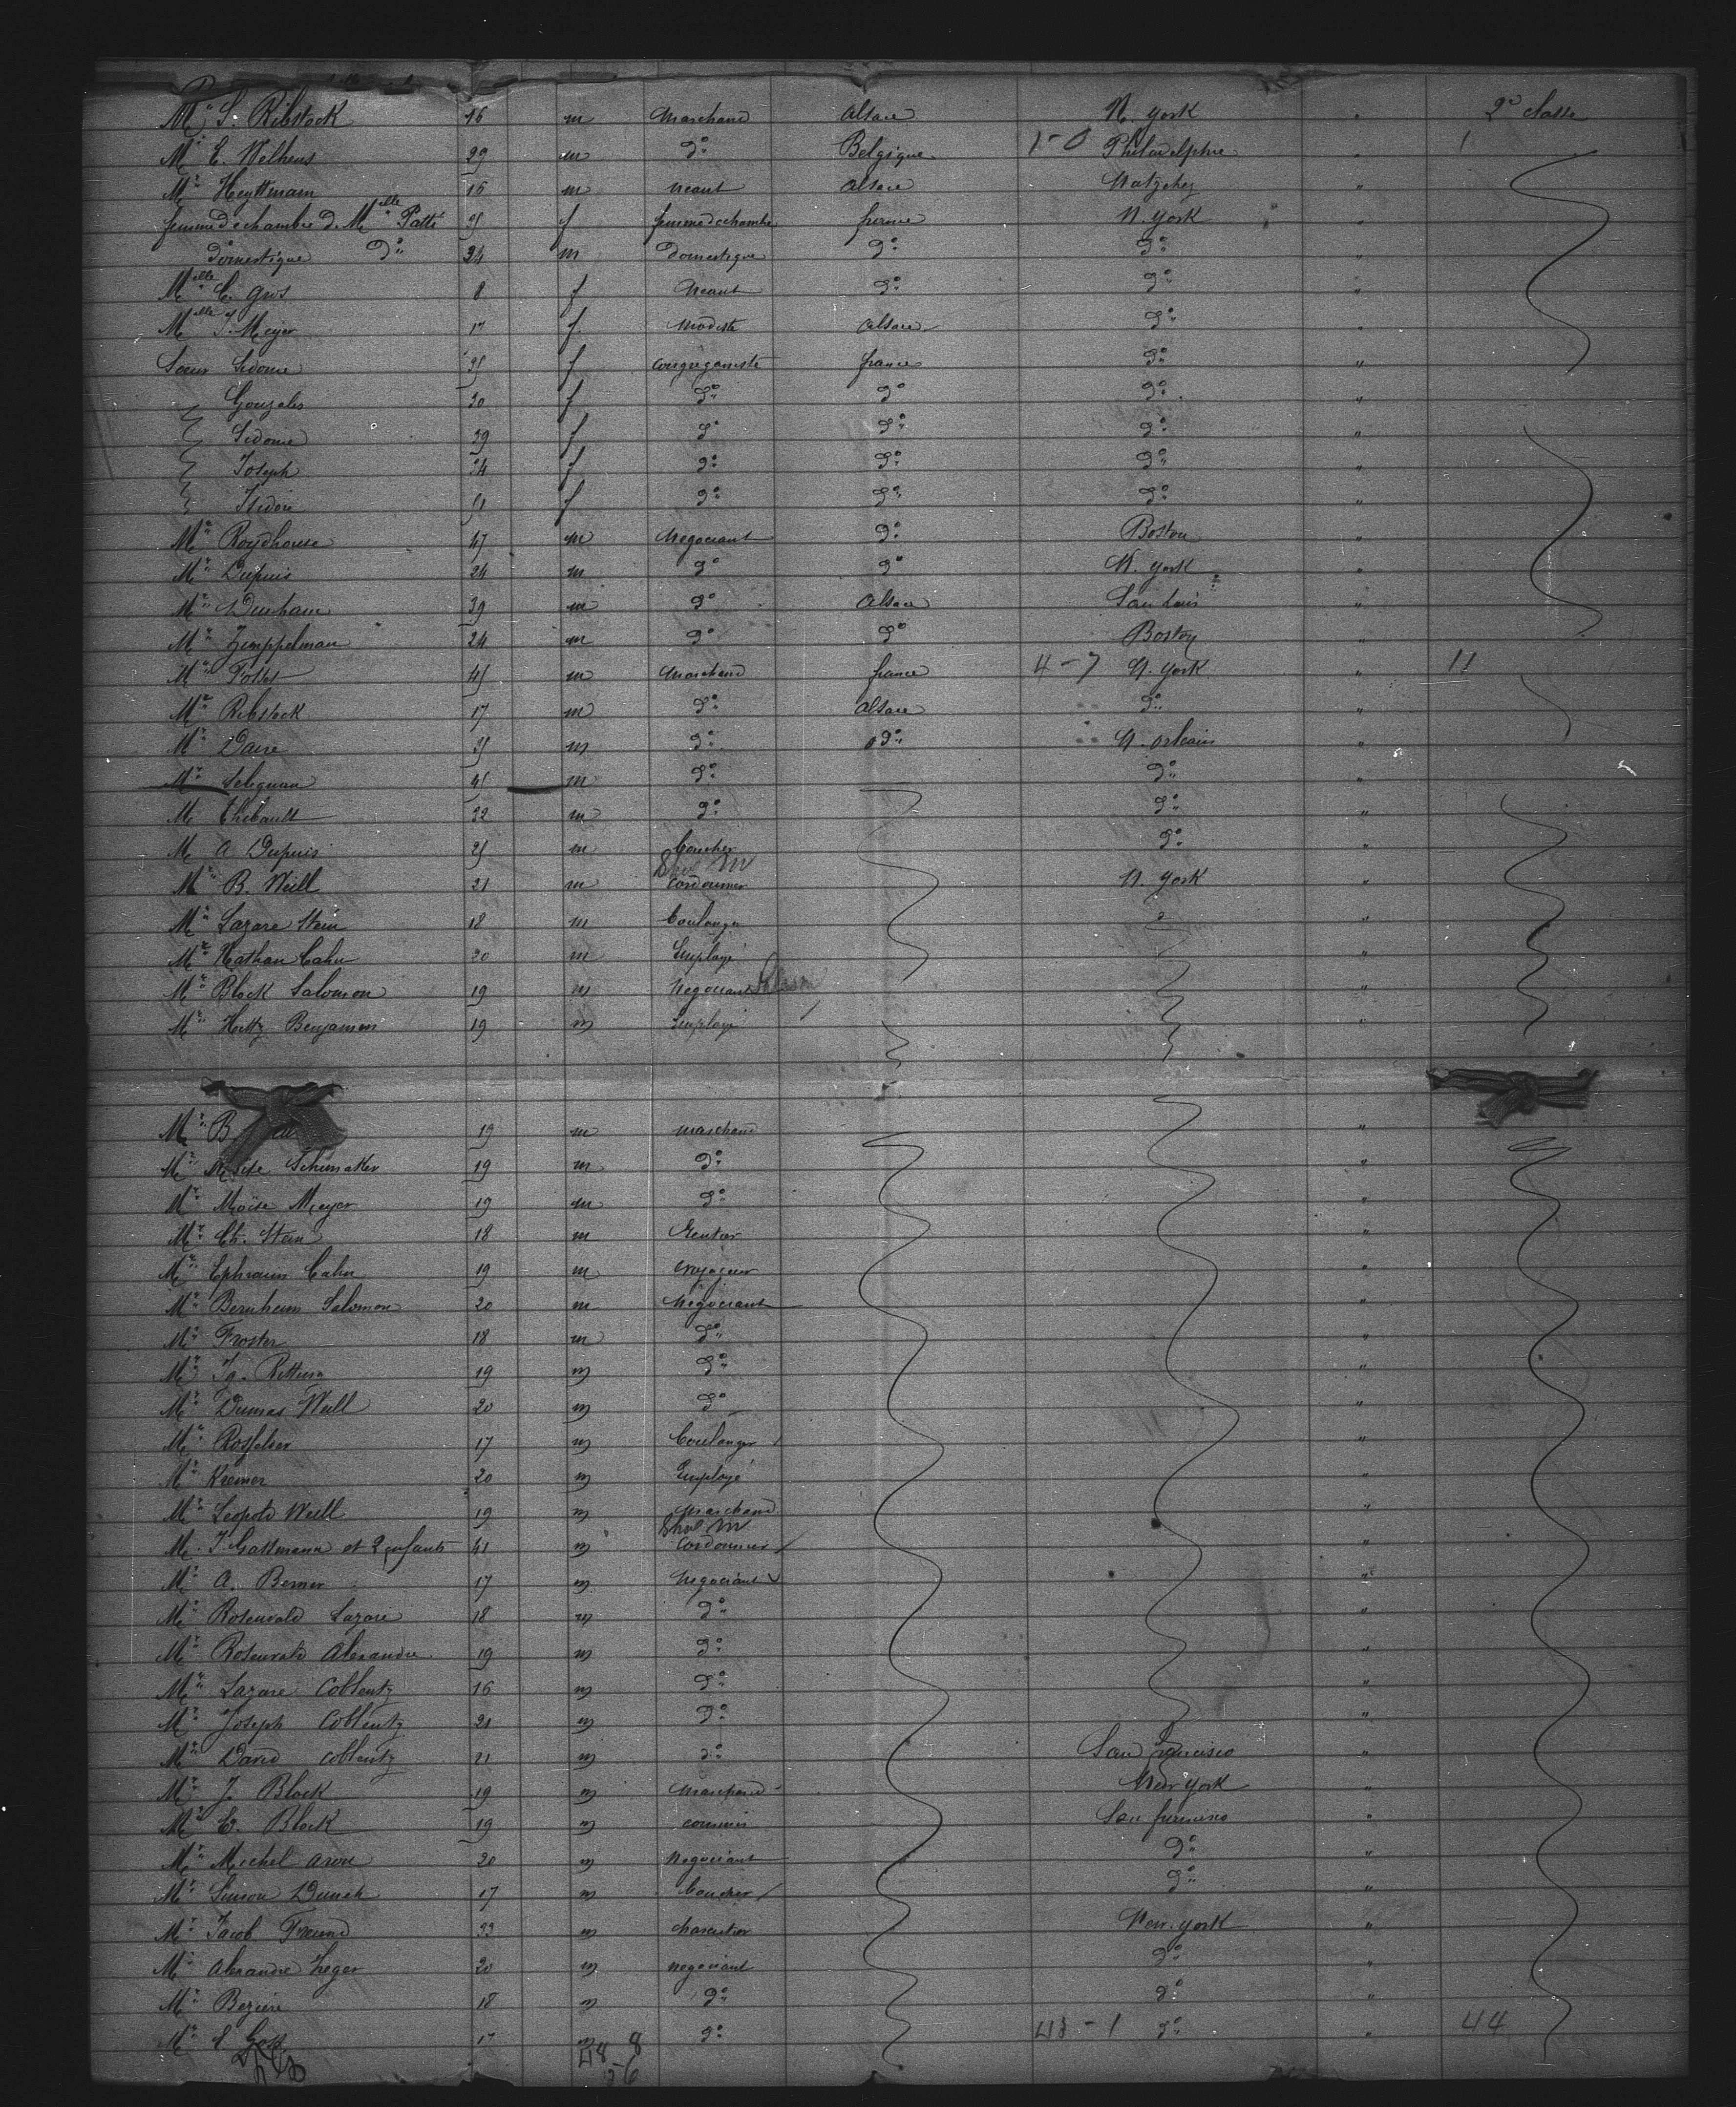 Mr S. Ribstock 16 m Marchand Alsace N. york " 2e classe
Mr E. Welhens 29 m do Belgique 1-0 Philadelphie " 1
Mr Heyttmann 16 m neant alsace Natzchez "
femme de chambre d. Melle Patti f femme de chambre france N. york "
Domestique do 24 m Domestique do do "
Melle C. Gros 8 f neant do do "
Melle J. Meyer 17 f. modiste alsace do "
Soeur Sidonie f congreganiste france do "
Gonzales 30 f do do do "
Sidonie 39 f do do do "
Joseph 34 f do do do "
Isidore f do do do "
Mr Roydhouse 47 m negociant do Boston "
Mr Dupuis 24 m do do N. york "
Mr Dunham 39 m do alsace San Louis "
Mr Zemppelman 24 m do do Boston "
Mr m Marchand france 4-7 N. york " 11
Mr Ribstock 17 m do alsace do "
Mr m do do N. orleans "
Mr Seligman m do do "
M. Thibault 32 m do do "
M. A Dupuis m boucher do "
Shoe M
Mr B. Weill 21 m cordonnier N. york "
Mr Lazare Stein 18 m boulanger "
Mr Nathan Cahn 20 m Employé "
Mr Block Salomon 19 m negociant "
Mr Hertz Benjamin 19 m Employé "
Mr B. 19 m marchand "
Mr Schumaker 19 m do "
Mr Moïse Meyer 19 m do "
Mr Ch. Stein 18 m Rentier "
Mr Ephraim Cahn 19 m "
Mr Bernheim Salomon 20 m négociant "
Mr Froster 18 m do "
Mr 19 m do "
Mr Dumas Weill 20 m do "
Mr Rosfelder 17 m boulanger "
Mr Kremer 20 m Employé "
Mr Leopold Weill 19 m marchand "
Shoe M
M. J. Gassmann et 2 enfants 41 m cordonnier "
Mr A. Berner 17 m negociant "
Mr Rosenvald Lazare 18 m do "
Mr Rosenvald Alexandre 19 m do "
Mr Lazare Coblentz 16 m do "
Mr Joseph Coblentz 21 m do "
Mr David Coblentz 21 m do San francisco "
Mr J. Block 19 m marchand New york "
Mr E. Block 19 m commis San francisco "
Mr Michel Aron 20 m negociant do "
Mr Simon 17 m boucher do "
Mr Jacob Freund 33 m charcutier New. york "
Mr Alexandre Leger 20 m negociant do "
Mr Beziere 18 m do do "
Mr 17 m do 43-1 do " 44
48 8
56